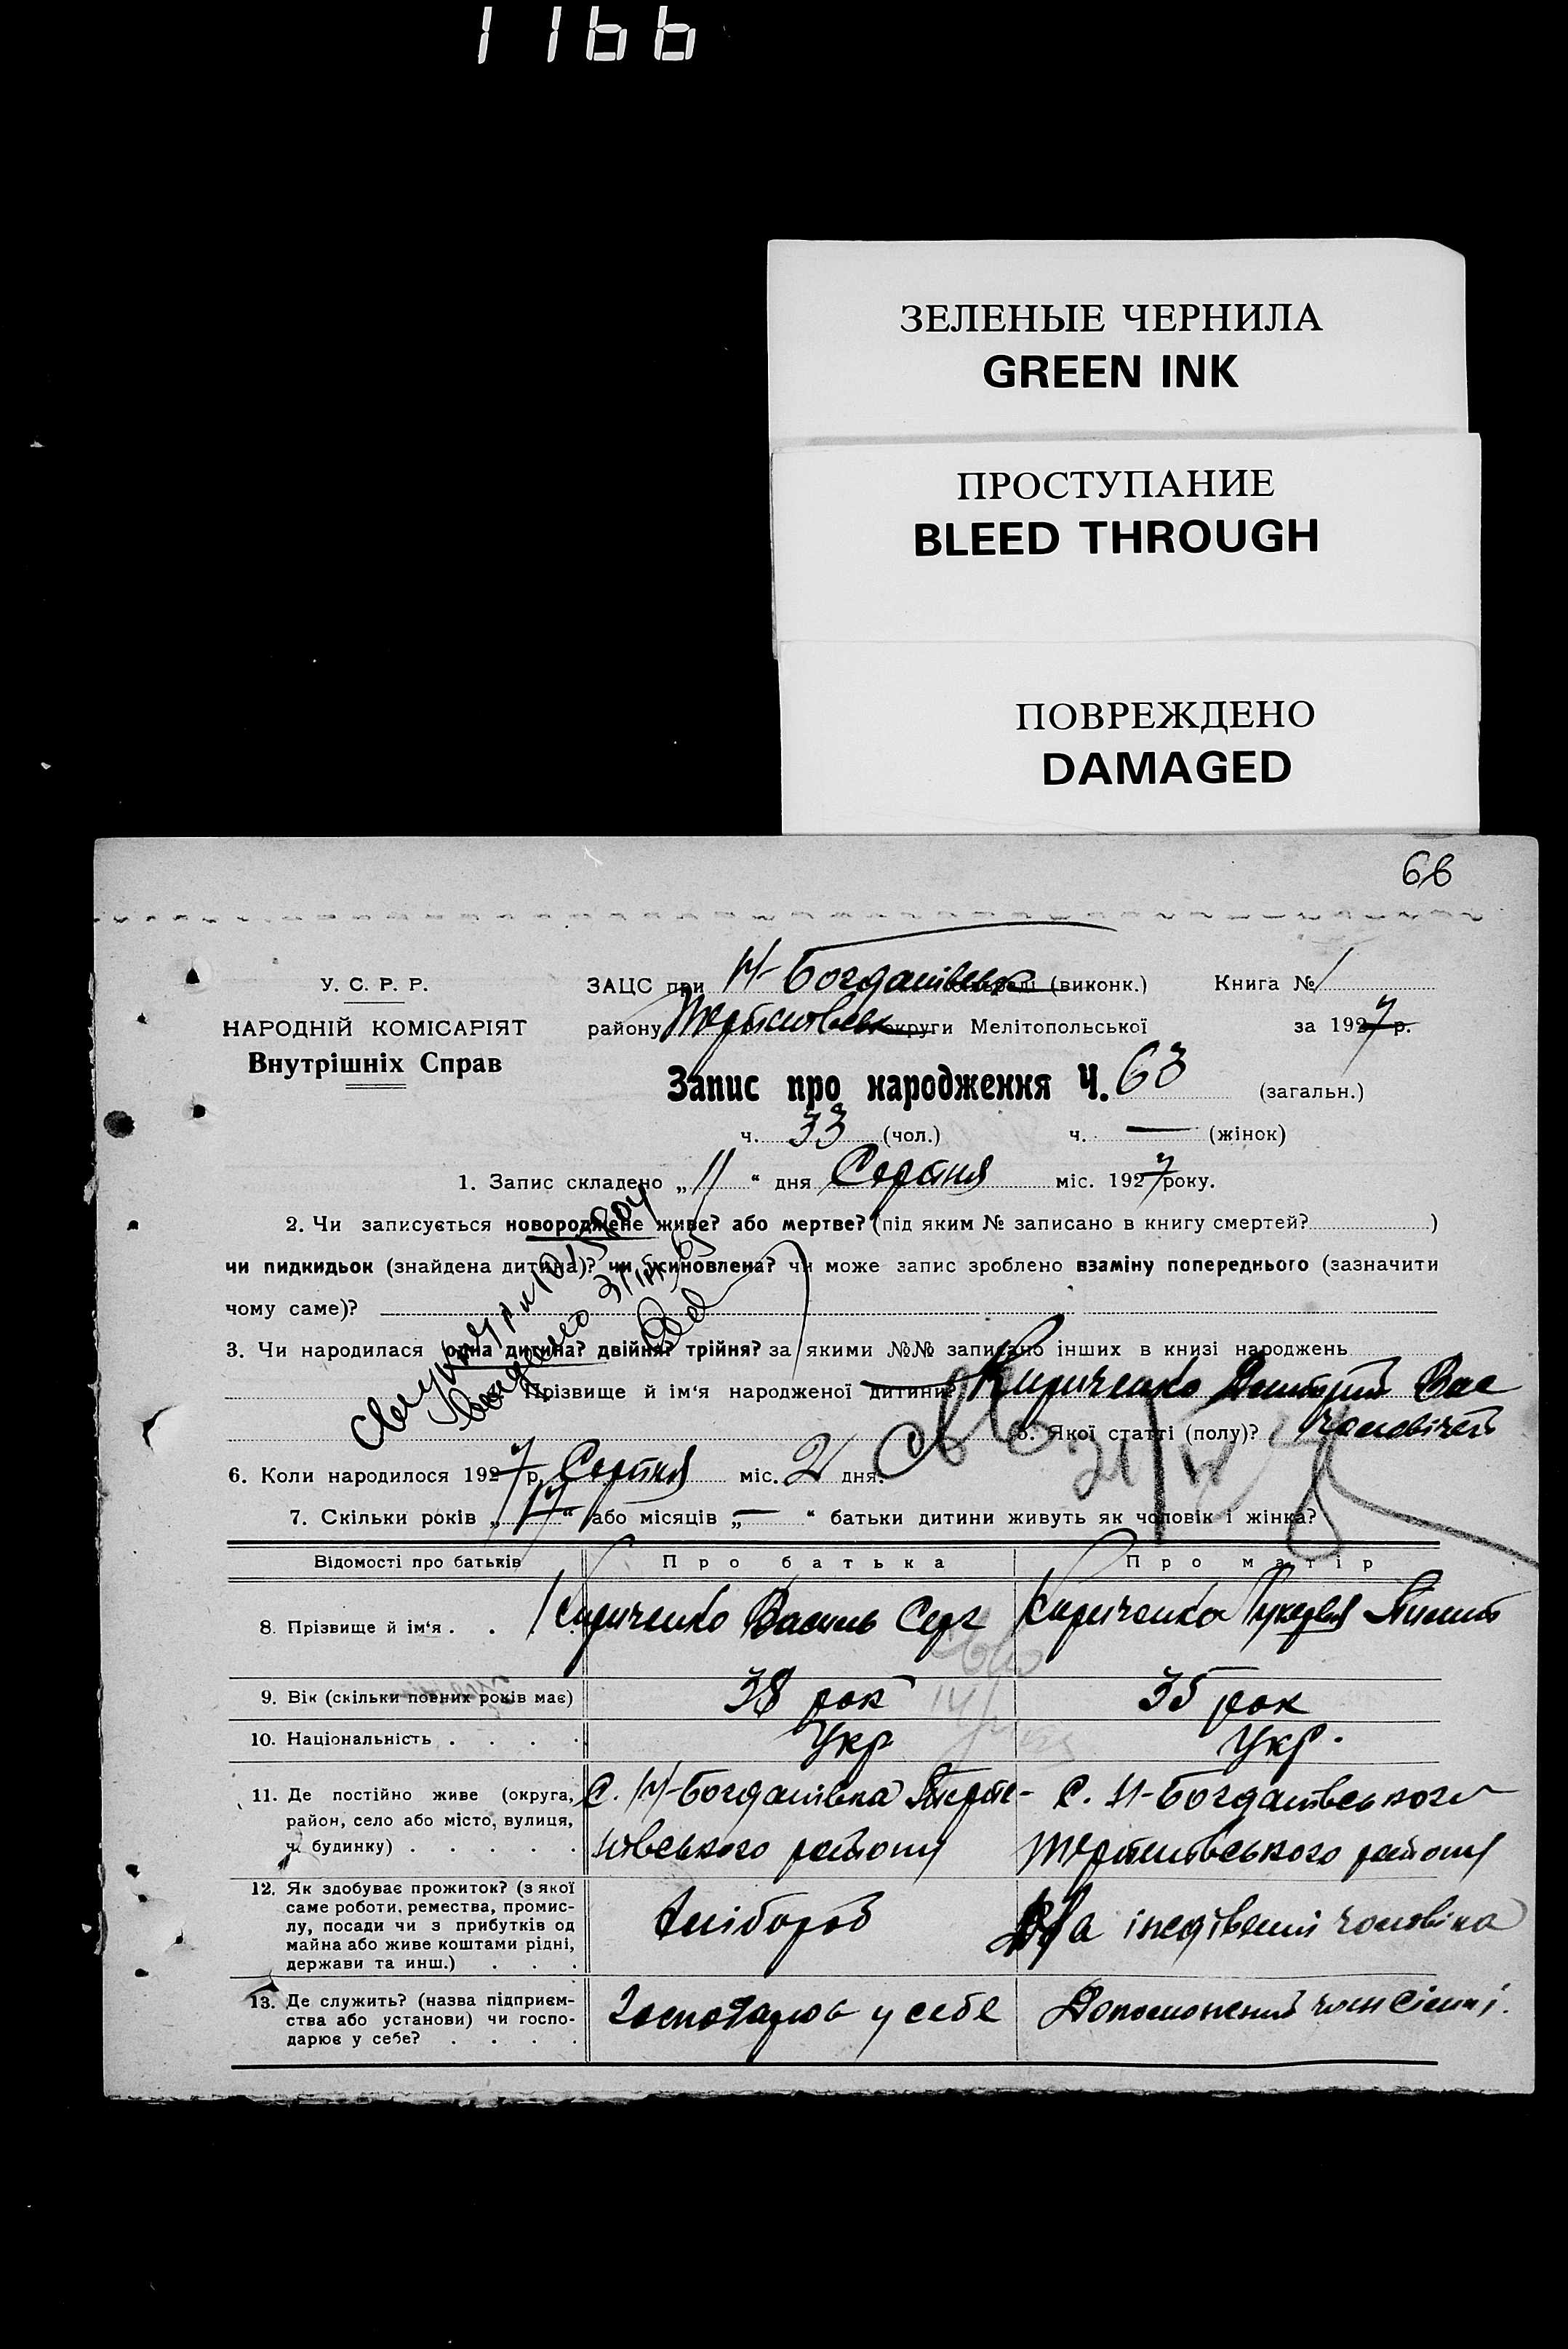 1166
ЗЕЛЕНЫЕ ЧЕРНИЛА
GREEN INK
ПРОСТУПАНИЕ
BLEED THROUGH
ПОВРЕЖДЕНО
DAMAGED
66
У. С. Р. Р.
НАРОДНІЙ КОМІСАРІЯТ
Внутрішніх Справ
ЗАЦС при Н-Богданівськ (виконк.) Книга № 1
району округи Мелітопольської за 1927 р.
Запис про народження Ч. 63 (загальн.)
ч. 33 (чол.) ч. — (жінок)
1. Запис складено „11“ дня Серпня міс. 1927 року.
2. Чи записується новороджене живе? або мертве? (під яким № записано в книгу смертей? )
чи пидкидьок (знайдена дитина)? чи усиновлена? чи може запис зроблено взаміну попереднього (зазначити
чому саме)?
3. Чи народилася одна дитина? двійня? трійня? за якими №№ записано інших в книзі народжень
Прізвище й ім'я народженої дитини Кириченко Дмитрий Вас
5. Якої статті (полу)? чоловічей
6. Коли народилося 1927 р. Серпня міс. 2 дня.
7. Скільки років „17“ або місяців „—“ батьки дитини живуть як чоловік і жінка?
Відомості про батьків Про батька Про матір
8. Прізвище й ім'я . . Кириченко Василь Серг Кириченко Лукерья
9. Вік (скільки повних років має) 38 рок 35 рок
10. Національність . . . . Укр Укр.
11. Де постійно живе (округа,
район, село або місто, вулиця,
ч. будинку) . . . . .
С. Н-Богданівка Терпе-
нівського району
С. Н-Богданівського
Терпенівського району
12. Як здобуває прожиток? (з якої
саме роботи, ремества, промис-
лу, посади чи з прибутків од
майна або живе коштами рідні,
держави та инш.) . . .
Хлібороб
На іждівенні чоловіка
13. Де служить? (назва підприєм-
ства або установи) чи госпо-
дарює у себе? . . . .
Господарює у себе